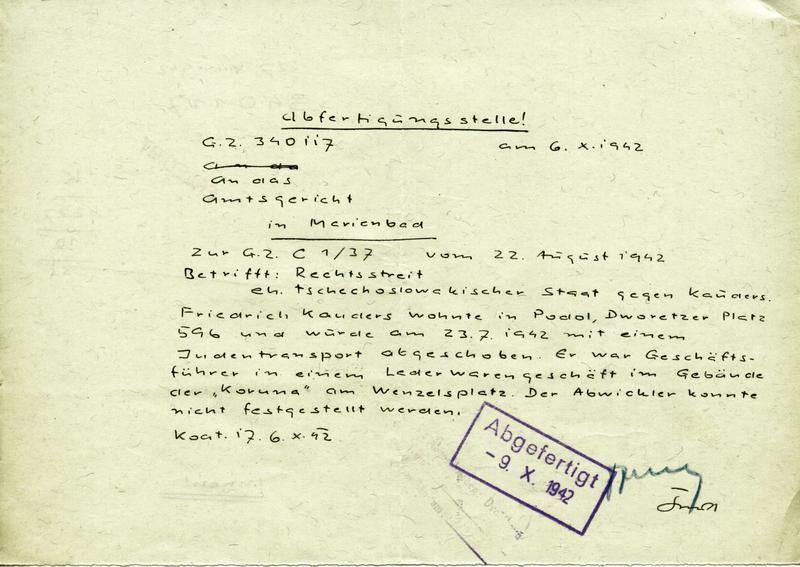 Abfertigungsstelle!
G.Z. 340117 am 6. X. 1942
An das
Amtsgericht
in Marienbad
Zur G.Z. C 1/37 vom 22. August 1942
Betrifft: Rechtsstreit
eh. tschechoslowakischer Staat gegen Kauders.
Friedrich Kauders wohnte in Podol, Dworetzer Platz
596 und wurde am 23.7. 1942 mit einem
Judentransport abgeschoben. Er war Geschäfts-
führer in einem Lederwarengeschäft im Gebäude
der „Koruna" am Wenzelsplatz. Der Abwickler konnte
nicht festgestellt werden.
17. 6. X. 42
Abgefertigt
- 9. X. 1942